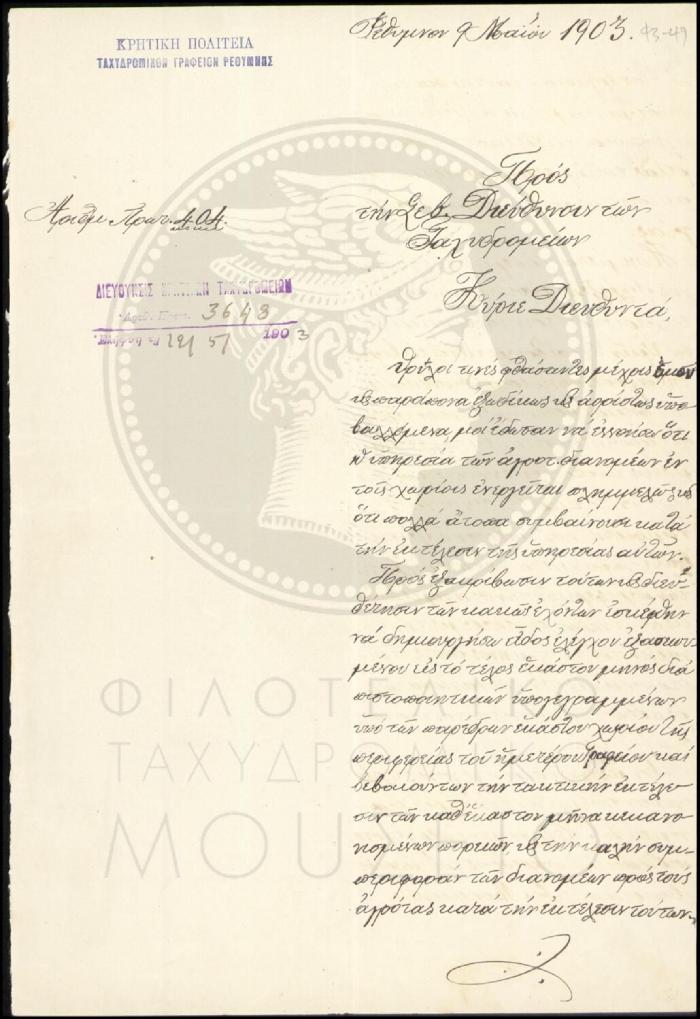 ΚΡΗΤΙΚΗ ΠΟΛΙΤΕΙΑ
ΤΑΧΥΔΡΟΜΙΚΟΝ ΓΡΑΦΕΙΟΝ ΡΕΘΥΜΝΗΣ
Ρέθυμνον 9 Μαΐου 1903.
93-49
Αριθμ. Πρωτ. 404.
Πρός
την Σεβ. Διεύθυνσιν των
Ταχυδρομείων
ΔΙΕΥΘΥΝΣΙΣ ΚΡΗΤΙΚΩΝ ΤΑΧΥΔΡΟΜΕΙΩΝ
Αριθ. Πρωτ. 3648
12/5/ 1903
Κύριε Διευθυντά,
Θρύλοι τινές φθάσαντες μέχρις εμού
και παράπονα εξωδίκως και αορίστως υπο-
βαλλόμενα, μοι έδωσαν να εννοήσω ότι
η υπηρεσία των αγροτ. διανομέων εν
τοις χωρίοις ενεργείται πλημμελώς και
ότι πολλά άτοπα συμβαίνουσι κατά
την εκτέλεσιν της υπηρεσίας αυτών.
Προς εξακρίβωσιν τούτων και διευ-
θέτησιν των κακώς εχόντων εσκέφθην
να δημιουργήσω είδος ελέγχου εξασκου-
μένου εις το τέλος εκάστου μηνός διά
πιστοποιητικών υπογεγραμμένων
υπό των παρέδρων εκάστου χωρίου της
περιφερείας του ημετέρου Γραφείου και
βεβαιούντων την τακτικήν εκτέλε-
σιν των καθ' έκαστον μήνα κεκανο-
νισμένων πορειών, και την καλήν συμ-
περιφοράν των διανομέων προς τους
αγρότας κατά την εκτέλεσιν τούτων.
ΦΙΛΟΤΕΛΙΚΟ
ΤΑΧΥΔΡΟΜΙΚΟ
ΜΟΥΣΕΙΟ